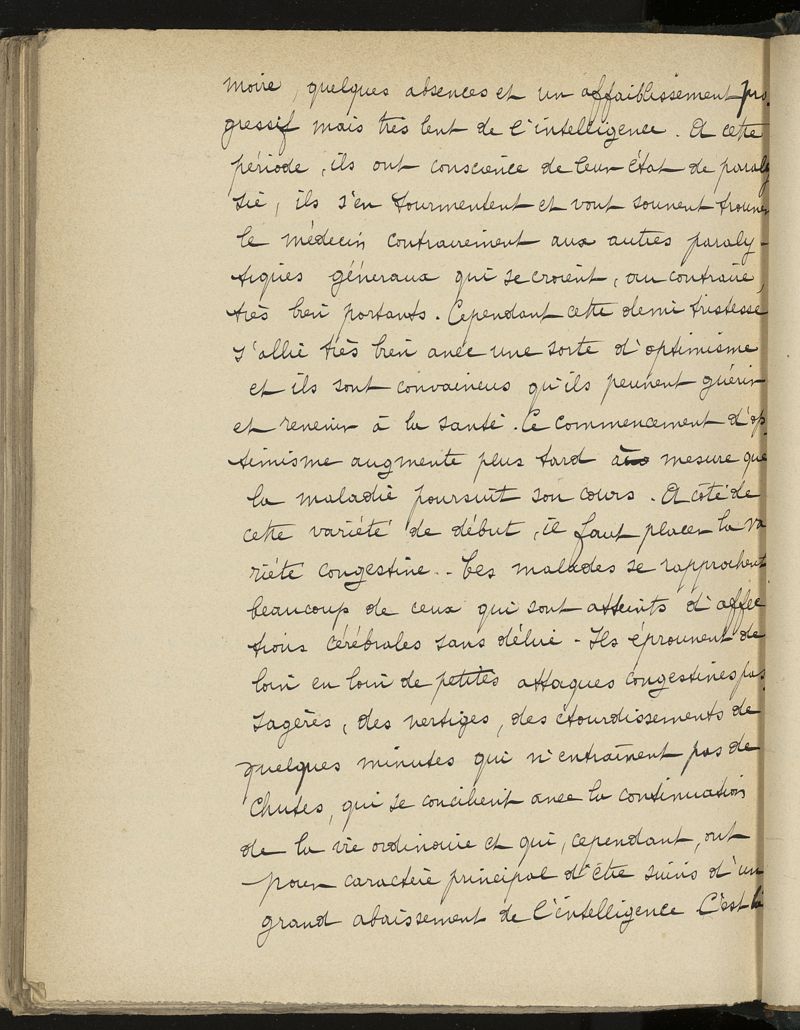 moire, quelques absences et un affaiblissement pro-
gressif mais très lent de l'intelligence. A cette
période, ils ont conscience de leur état de paraly
sie, ils s'en tourmentent et vont souvent trouver
le médecin contrairement aux autres paraly-
tiques généraux qui se croient, au contraire,
très bien portants. Cependant cette demi tristesse
s'allie très bien avec une sorte d'optimisme
et ils sont convaincus qu'ils peuvent guérir
et revenir à la santé. Ce commencement d'op-
timisme augmente plus tard à mesure que
la maladie poursuit son cours. A côté de
cette variété de début, il faut placer la va
riété congestive. Ces malades se rapprochent
beaucoup de ceux qui sont atteints d'affec
tions cérébrales sans délire - Ils éprouvent de
loin en loin de petites attaques congestives pas
sagères, des vertiges, des étourdissements de
quelques minutes qui n'entraînent pas de
chutes, qui se concilient avec la continuation
de la vie ordinaire et qui, cependant, ont
pour caractère principal d'être suivis d'un
grand abaissement de l'intelligence C'est là